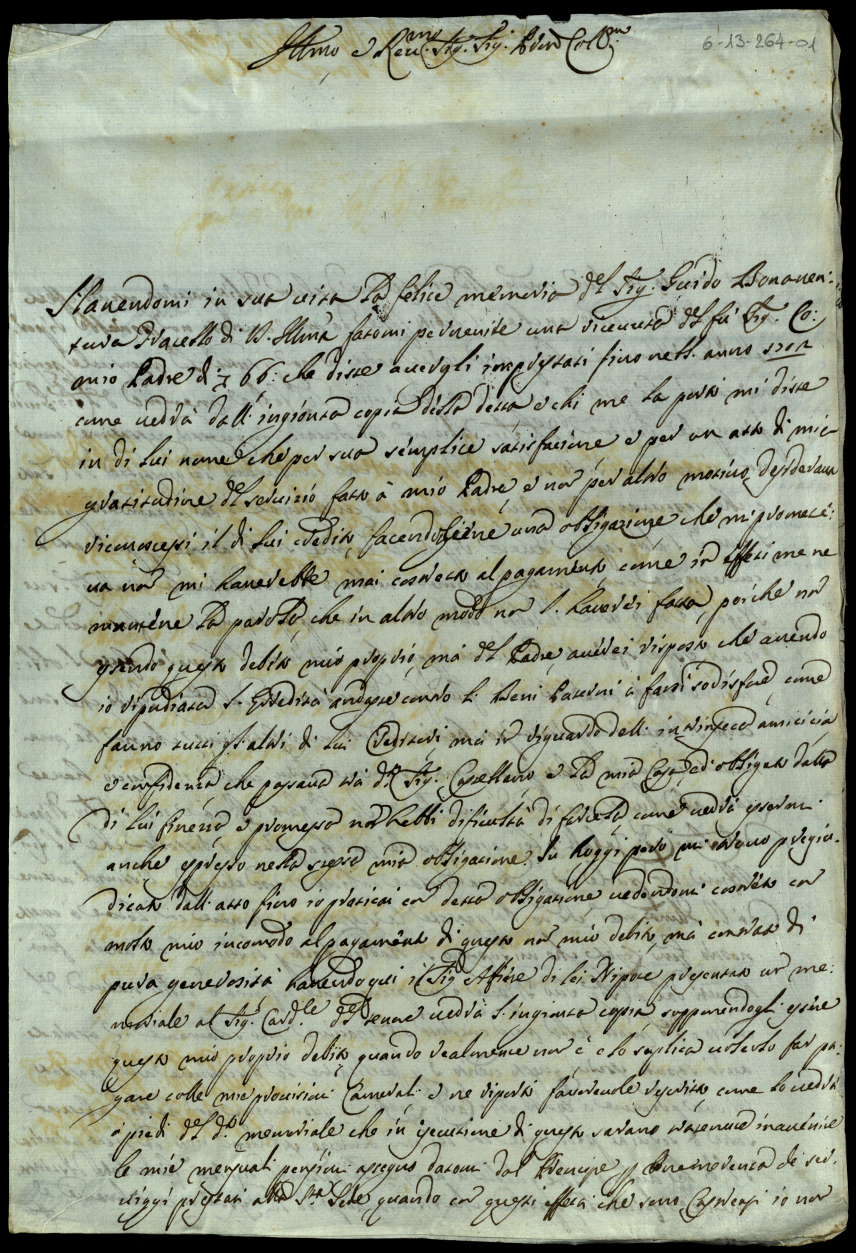 Illmo e Reu.mo Sig. Sig. Prne Coll.mo
6-13-264-01
Hauendomi in sua uita la felice memoria del Sig. Guido Bonauen:
tura fratello di V. Illma fatomi peruenire una riceuuta del fù Sig. Co:
mio Padre di 66: che disse auergli imprestati fino nell. anno
come uedrà dall'ingionta copia della detta e chi me la portò mi disse
in di lui nome che per sua semplice satisfazione e per un atto di mia
gratitudine del seruizio fatto à mio Padre e non per altro motiuo desideraua
riconoscessi il di lui credito, facendogliene una obligazione che mi promete:
ua non mi hauerebbe mai costreto al pagamento come in effeti me ne
mantene la parola, che in altro modo non l. hauerei fatta, poiche non
essendo questo debito mio proprio, mà del Padre auerei risposto che auendo
io ripudiata l. Eredità andasse contro li Beni Paterni à farsi sodisfare, come
fanno tutti gl'altri di lui Creditori mà in riguardo dell. intrinseca amicicia
e confidenza che passaua trà d.o Sig. Castellano e la mia Casa, ed obligato dalla
di lui finezza e promessa non hebbi dificultà di farla, come uedrà
anche espresso nella stessa mia obligazione. In hoggi però mi trouo pregiu:
dicato dall. atto fino io praticai con detta obligazione uedendomi costreto con
molto mio incomodo al pagamento di questo non mio debito, mà contrato di
pura generosità hauendo qui il Sig. Alfiere di lei Nipote presentato un me:
moriale al Sig. Card.le del tenore uedrà l. ingionta copia, supponendogli essere
questo mio proprio debito quando realmente non è e lo suplica uolerlo far pa:
gare colle mie prouisioni Camerali e ne riportò fauoreuole rescrito, come lo uedrà
à piedi del d.o memoriale che in esecutione di questo sarano tratenute in auenire
le mie mensuali pensioni assegno datomi dal Prencipe p di ser:
uiggi prestati alla S.ta Sede, quando con questi effetti che sono io non